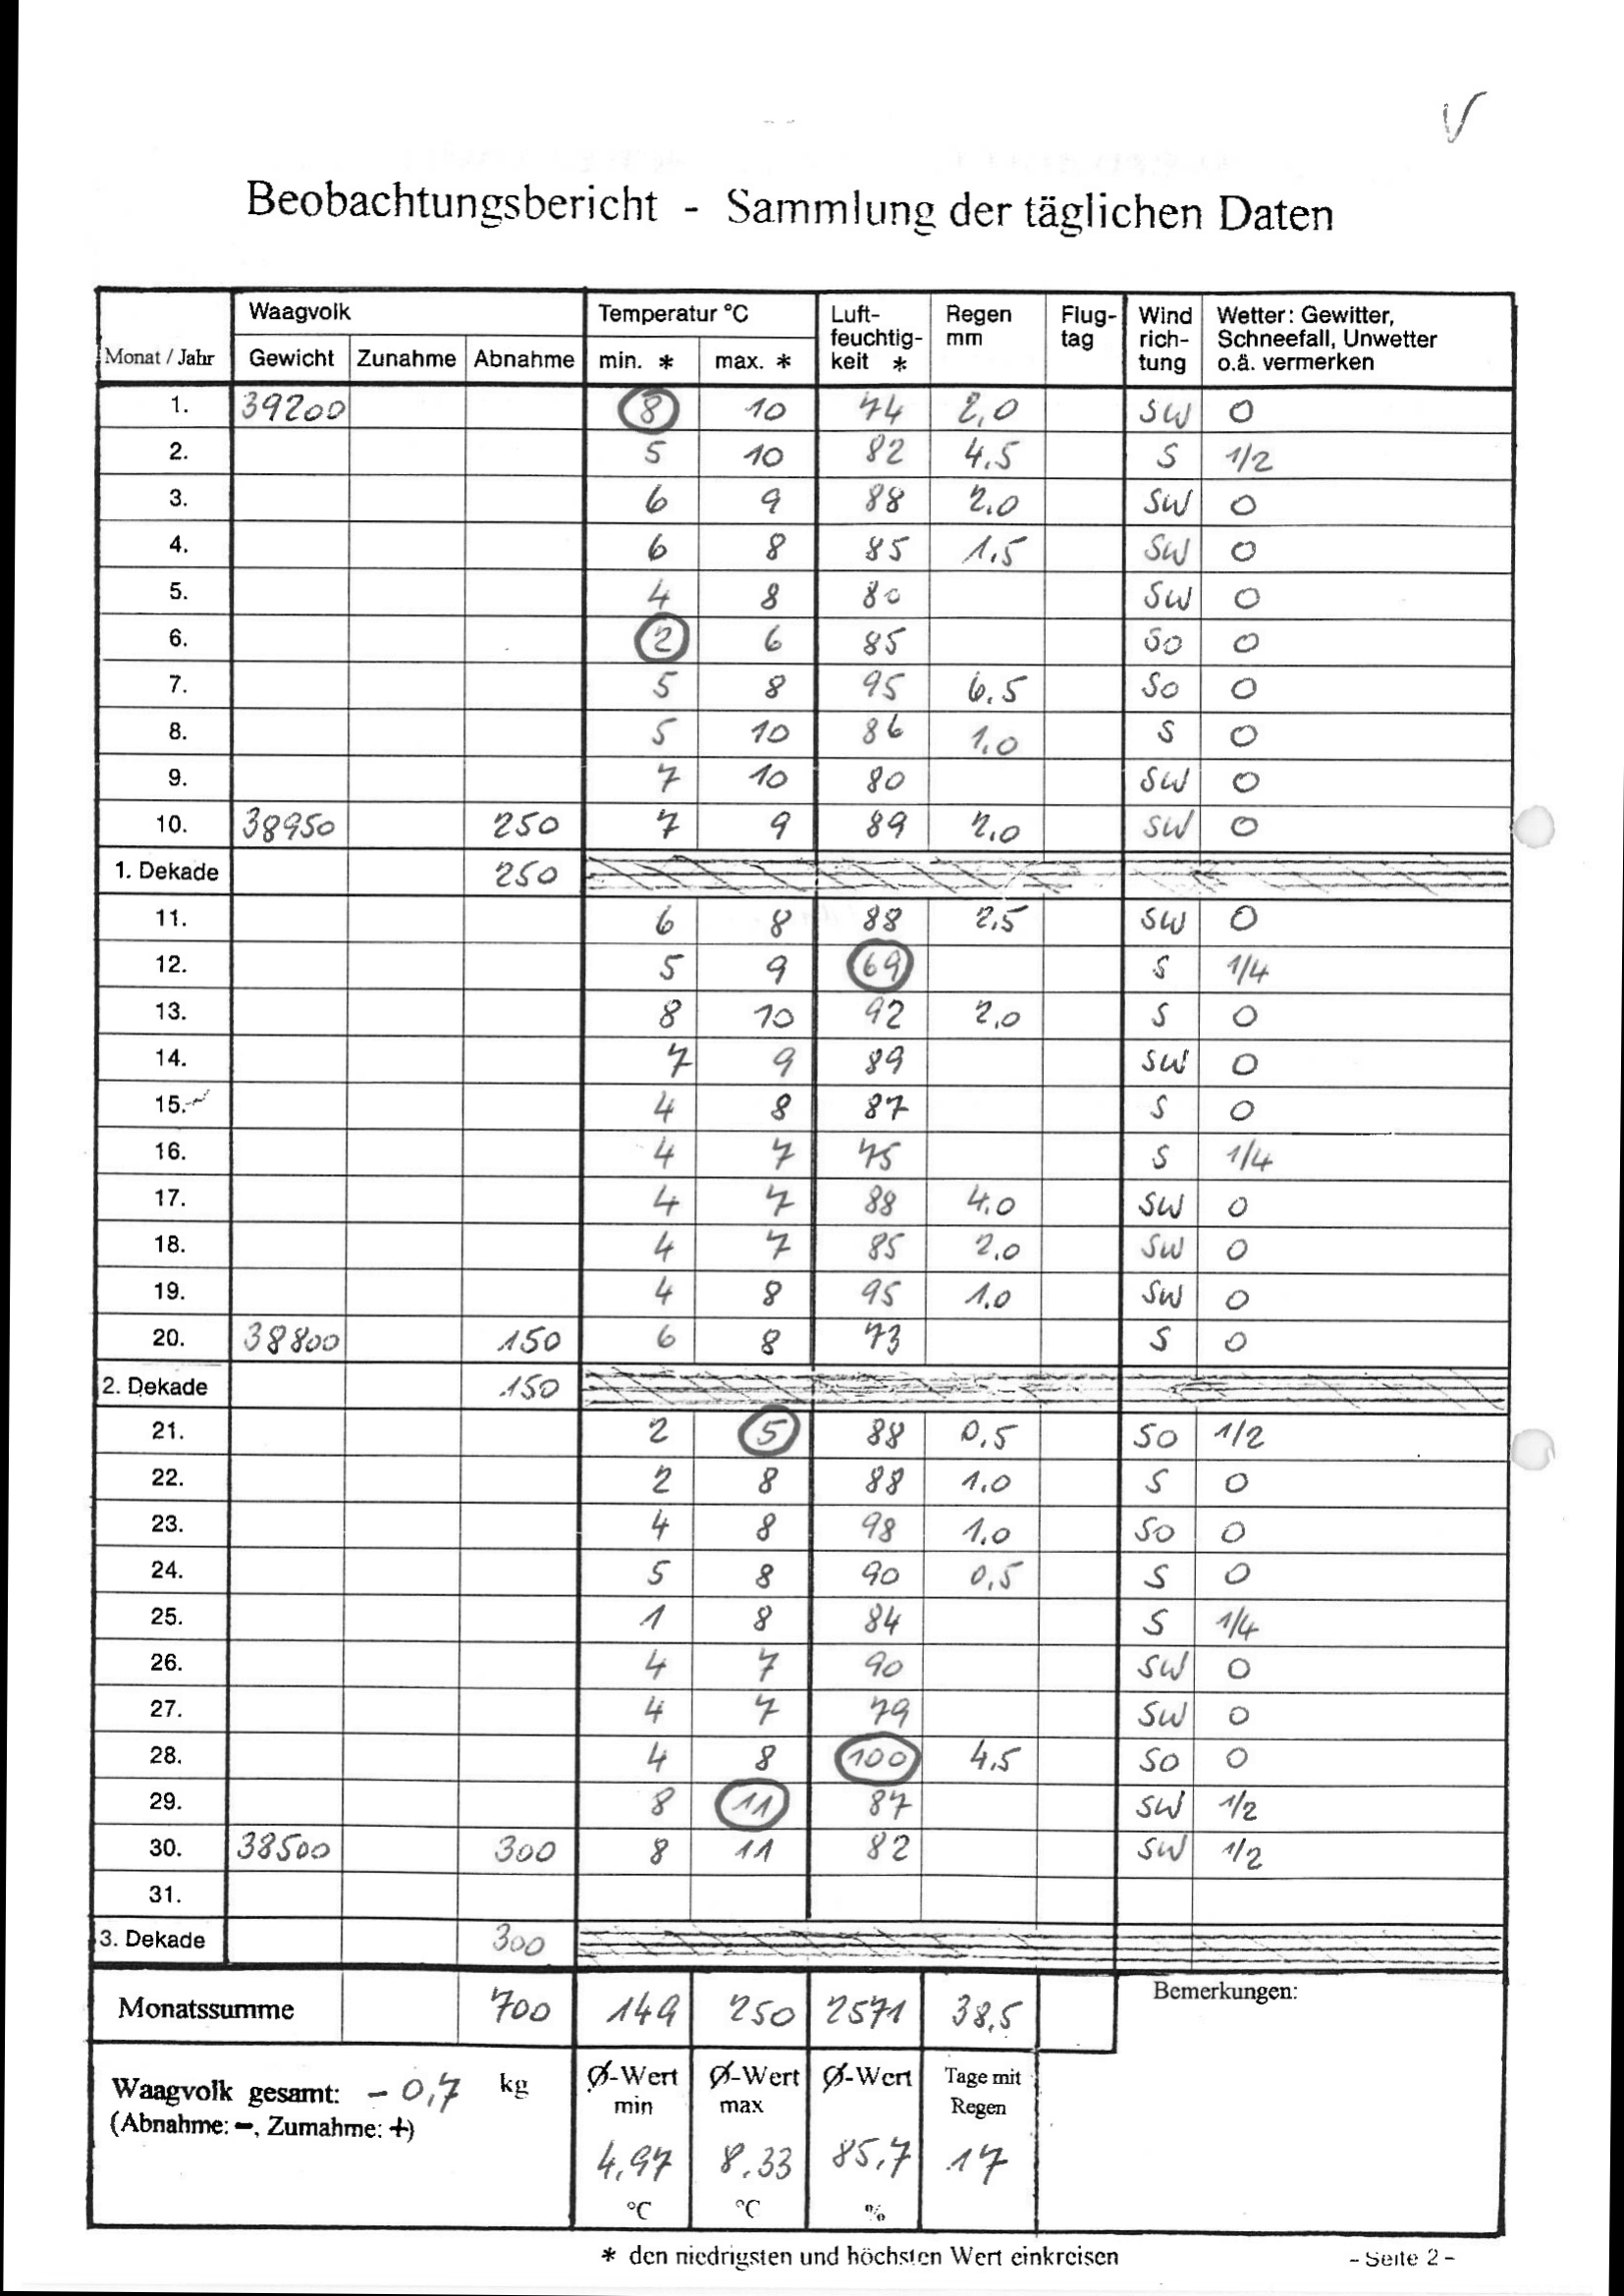 Beobachtungsbericht - Sammlung der täglichen Daten
Monat / Jahr Waagvolk Temperatur °C Luft-feuchtig-keit * Regen mm Flug-tag Wind rich-tung Wetter: Gewitter, Schneefall, Unwetter o.ä. vermerken
Gewicht Zunahme Abnahme min. * max. *
1. 39200 8 10 74 2,0 SW 0
2. 5 10 82 4.5 S 1/2
3. 6 9 88 2.0 SW 0
4. 6 8 85 1.5 SW 0
5. 4 8 80 SW 0
6. 2 6 85 SO 0
7. 5 8 95 6.5 SO 0
8. 5 10 86 1.0 S 0
9. 7 10 80 SW 0
10. 38950 250 7 9 89 2,0 SW 0
1. Dekade 250
11. 6 8 88 2,5 SW 0
12. 5 9 69 S 1/4
13. 8 10 92 2,0 S 0
14. 7 9 89 SW 0
15. 4 8 87 S 0
16. 4 7 75 S 1/4
17. 4 7 88 4.0 SW 0
18. 4 7 85 2.0 SW 0
19. 4 8 95 1.0 SW 0
20. 38800 150 6 8 73 S 0
2. Dekade 150
21. 2 5 88 0,5 SO 1/2
22. 2 8 88 1.0 S 0
23. 4 8 98 1.0 SO 0
24. 5 8 90 0,5 S 0
25. 1 8 84 S 1/4
26. 4 7 90 SW 0
27. 4 7 79 SW 0
28. 4 8 100 4,5 SO 0
29. 8 11 87 SW 1/2
30. 38500 300 8 11 82 SW 1/2
31.
3. Dekade 300
Monatssumme 700 149 250 2571 38,5
Bemerkungen:
Waagvolk gesamt: - 0,7 kg
(Abnahme: -, Zumahme: +)
Ø-Wert min 4,97 °C
Ø-Wert max 8.33 °C
Ø-Wert 85,7 %
Tage mit Regen 17
* den niedrigsten und höchsten Wert einkreisen
- Seite 2 -